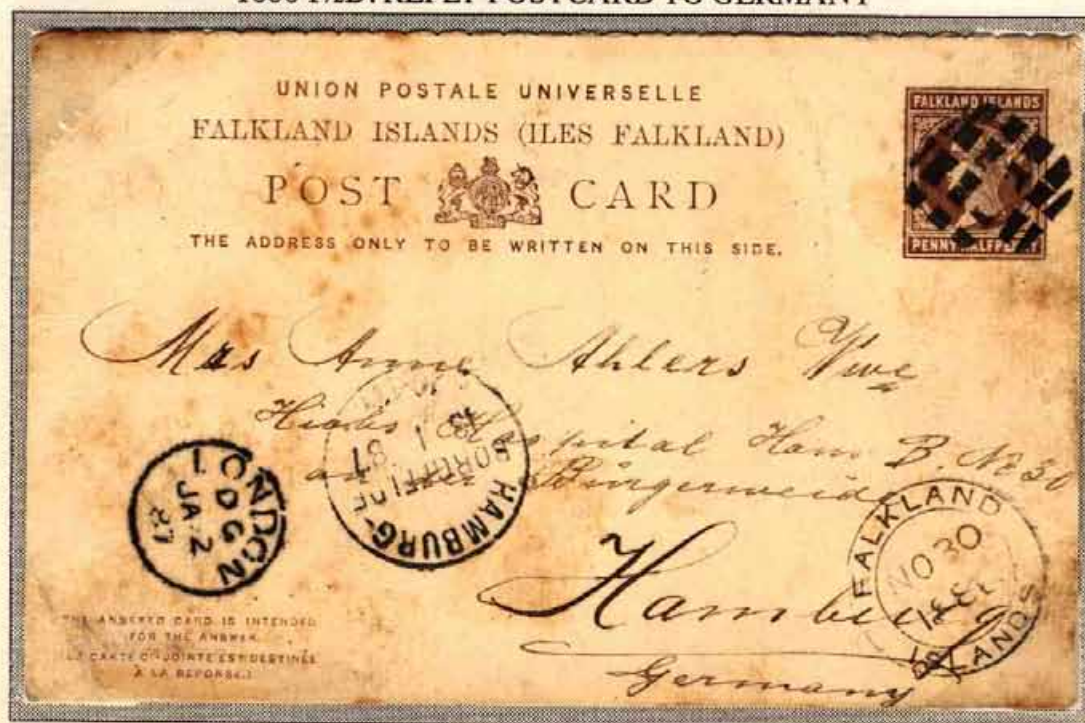 REPLY POSTCARD TO GERMANY
UNION POSTALE UNIVERSELLE
FALKLAND ISLANDS (ILES FALKLAND)
POST CARD
THE ADDRESS ONLY TO BE WRITTEN ON THIS SIDE.
FALKLAND ISLANDS
PENNY HALFPENNY
Mrs Anne Ahlers Wwe
Hospital Ham B. No 30
Bürgerweide
Hamburg
Germany
LONDON
DG
JA 2
87
HAMBURG
13
1
87
FALKLAND
NO 30
ISLANDS
THE ANNEXED CARD IS INTENDED
FOR THE ANSWER.
LA CARTE CI-JOINTE EST DESTINÉE
À LA RÉPONSE.)